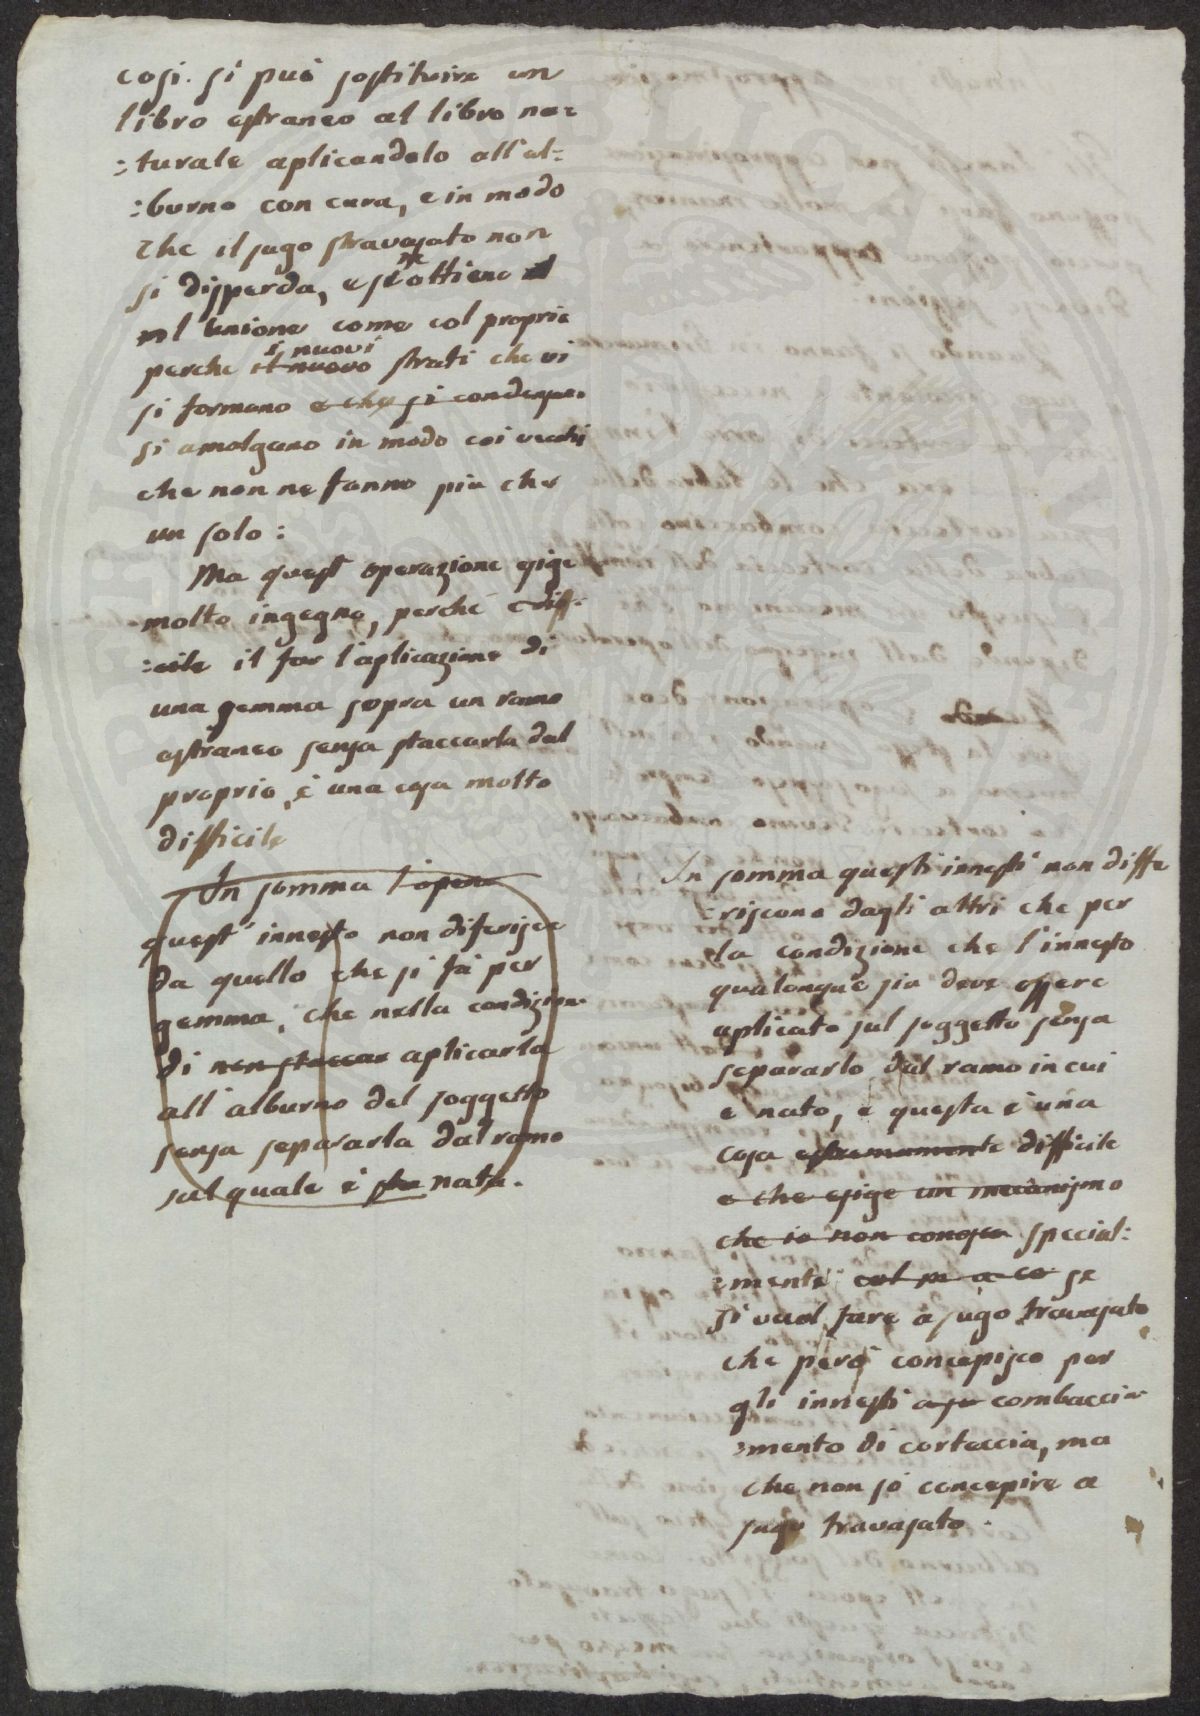 cosi. si può sostituire un
libro estraneo al libro na=
=turale aplicandolo all'al=
=burno con cura, e in modo
che il sugo stravasato non
si disperda, e si ne ottiene
l'unione come col proprio
perche il nuovo i nuovi strati che vi
si formano e che si condensa.
si amalgano in modo coi vecchi
che non ne fanno più che
un solo:
Ma quest operazione esige
molto ingegno, perché è diffi=
=cile il far l'aplicazione di
una gemma sopra un ramo
estraneo senza staccarla dal
proprio, è una cosa molto
difficile
In somma l'opera
quest' innesto non diferisce
da quello che si fà per
gemma, che nella condizione
di non staccar aplicarla
all'alburno del soggetto
senza separarla dal ramo
sul quale è sta nata.
In somma questi innesti non diffe
=riscono dagli altri che per
la condizione che l'innesto
qualonque sia deve essere
aplicato sul soggetto senza
separarlo dal ramo in cui
è nato, e questa è una
cosa estremamente difficile
e che esige un mecanismo
che io non conosco special=
=mente se
si vuol fare a sugo travasato
che però concepisco per
gli innesti a su combaccia=
=mento di corteccia, ma
che non sò concepire a
sugo travasato.